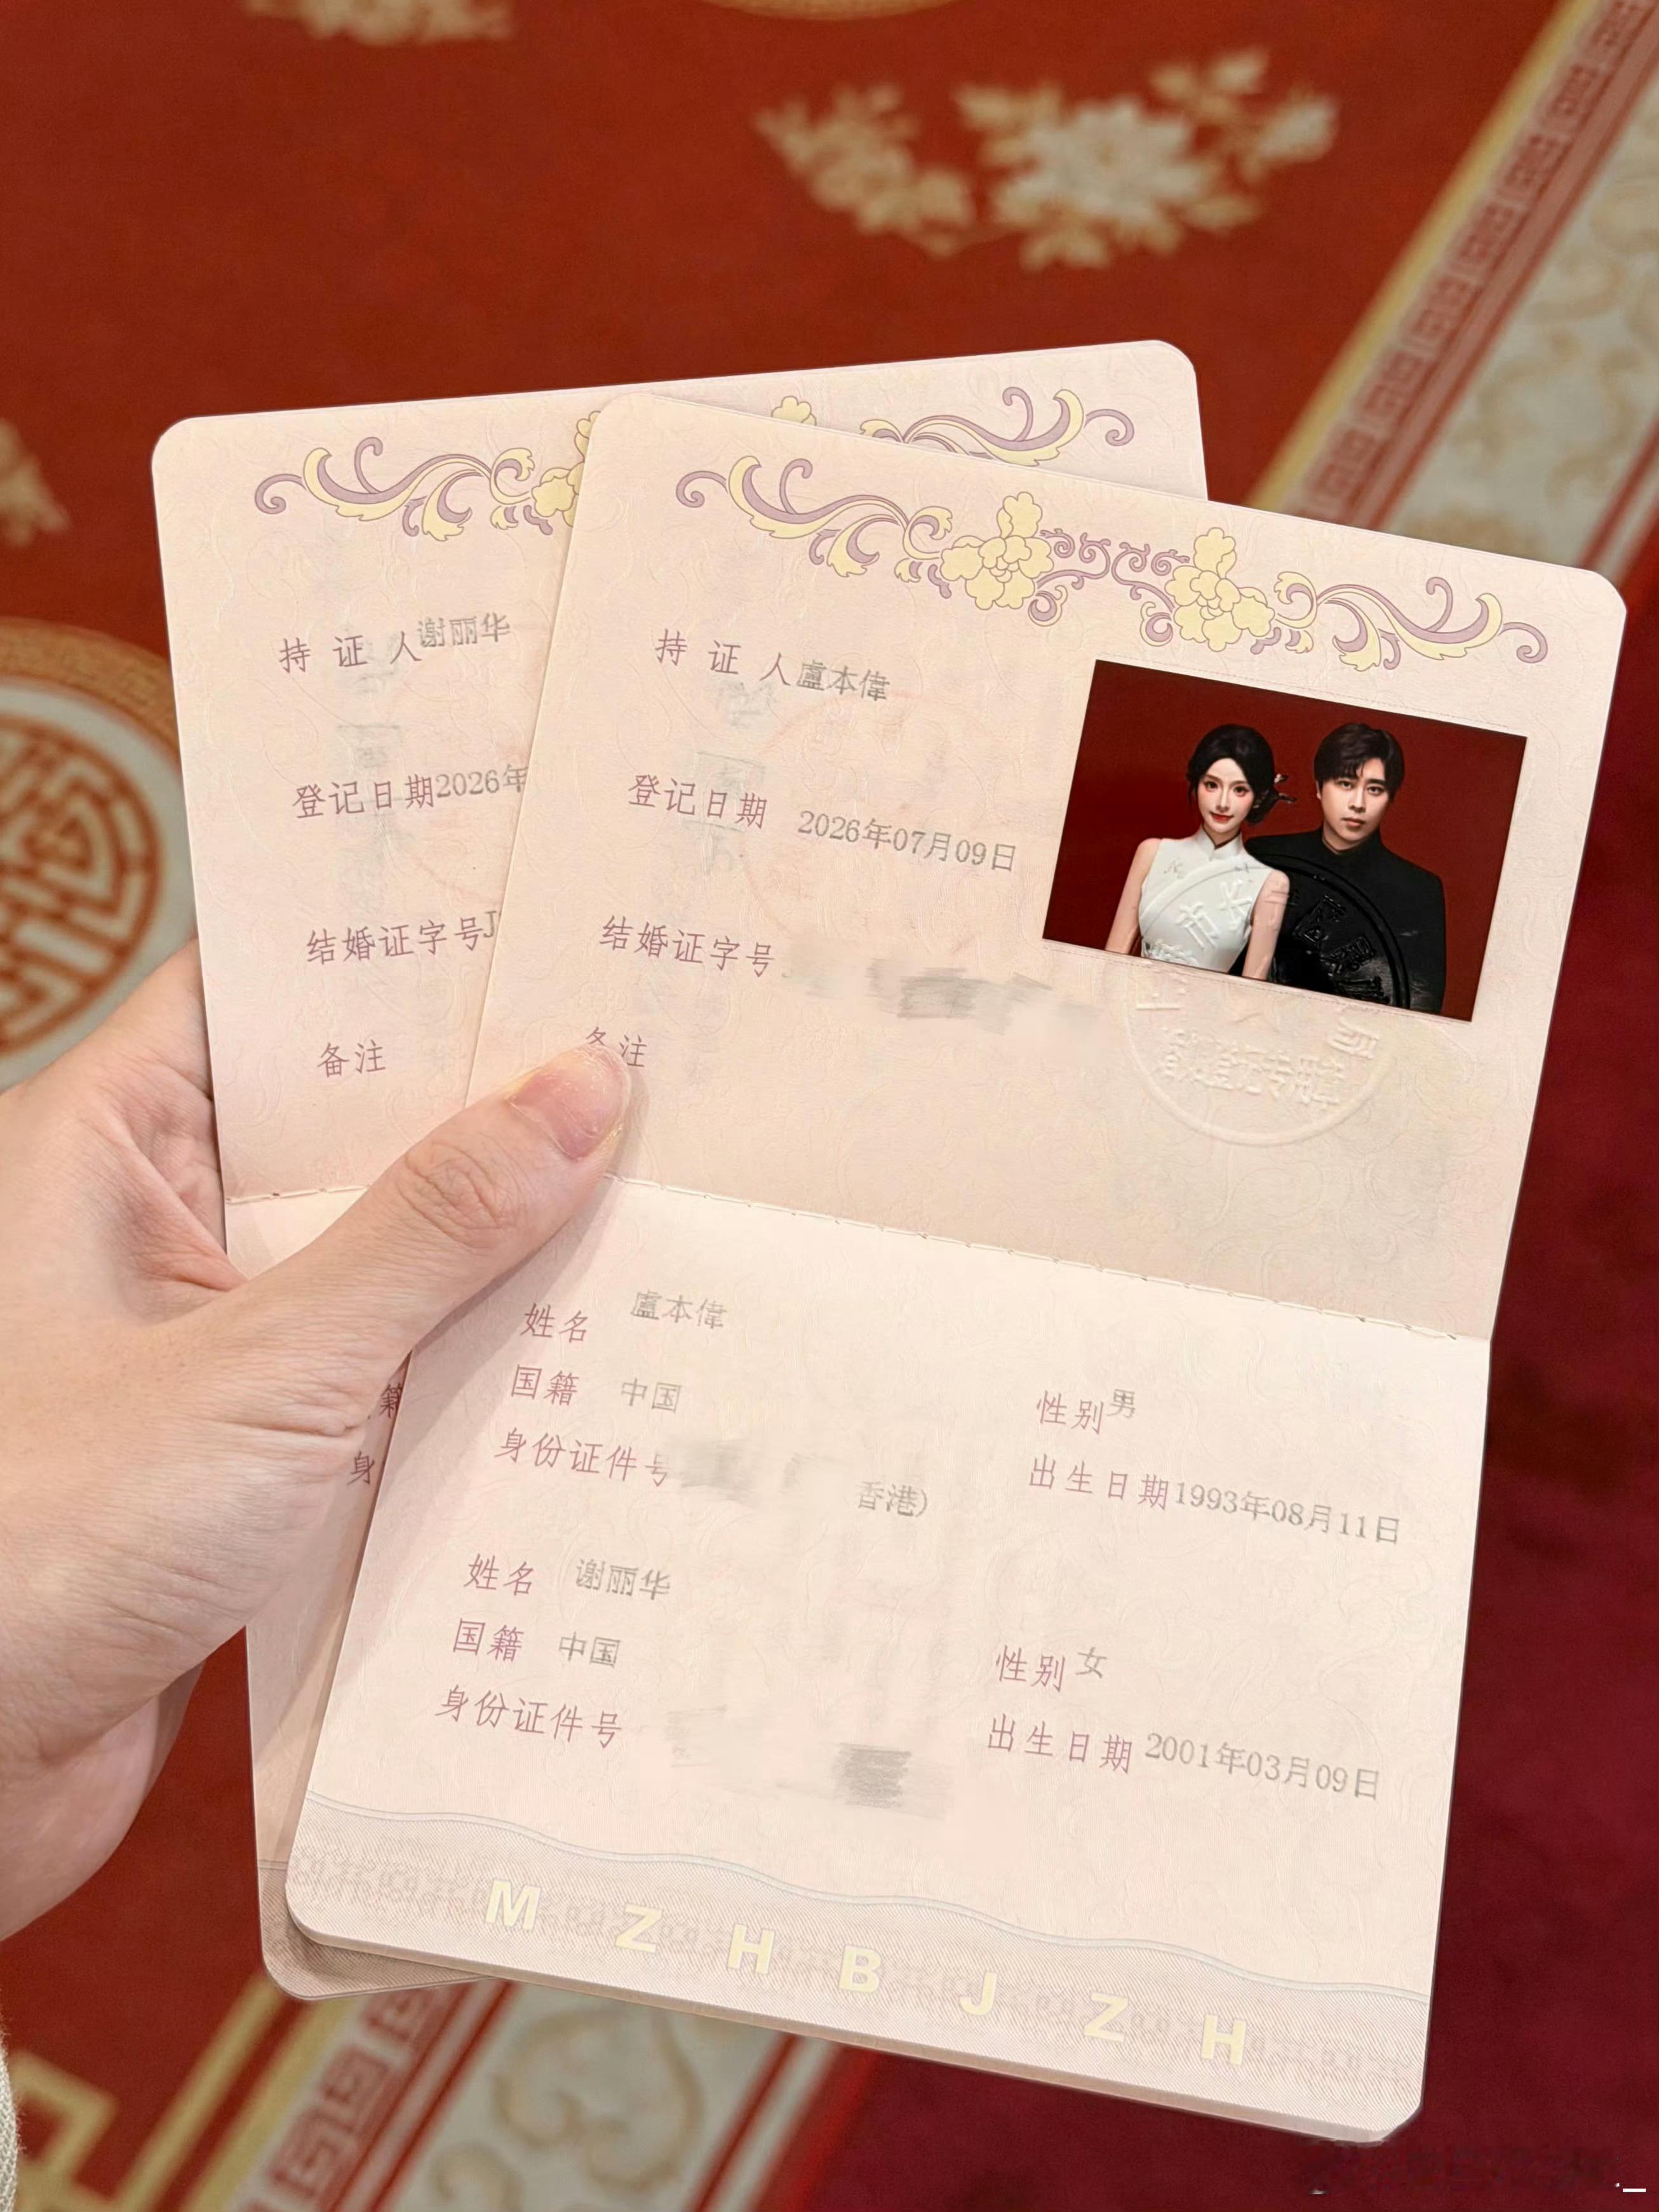 持证人谢丽华
登记日期2026年
结婚证字号J
备注
持证人盧本偉
登记日期 2026年07月09日
结婚证字号
备注
婚姻登记专用章
姓名 盧本偉
国籍 中国 性别男
身份证件号 香港) 出生日期1993年08月11日
姓名 谢丽华
国籍 中国 性别女
身份证件号 出生日期 2001年03月09日
籍
身
M Z H B J Z H